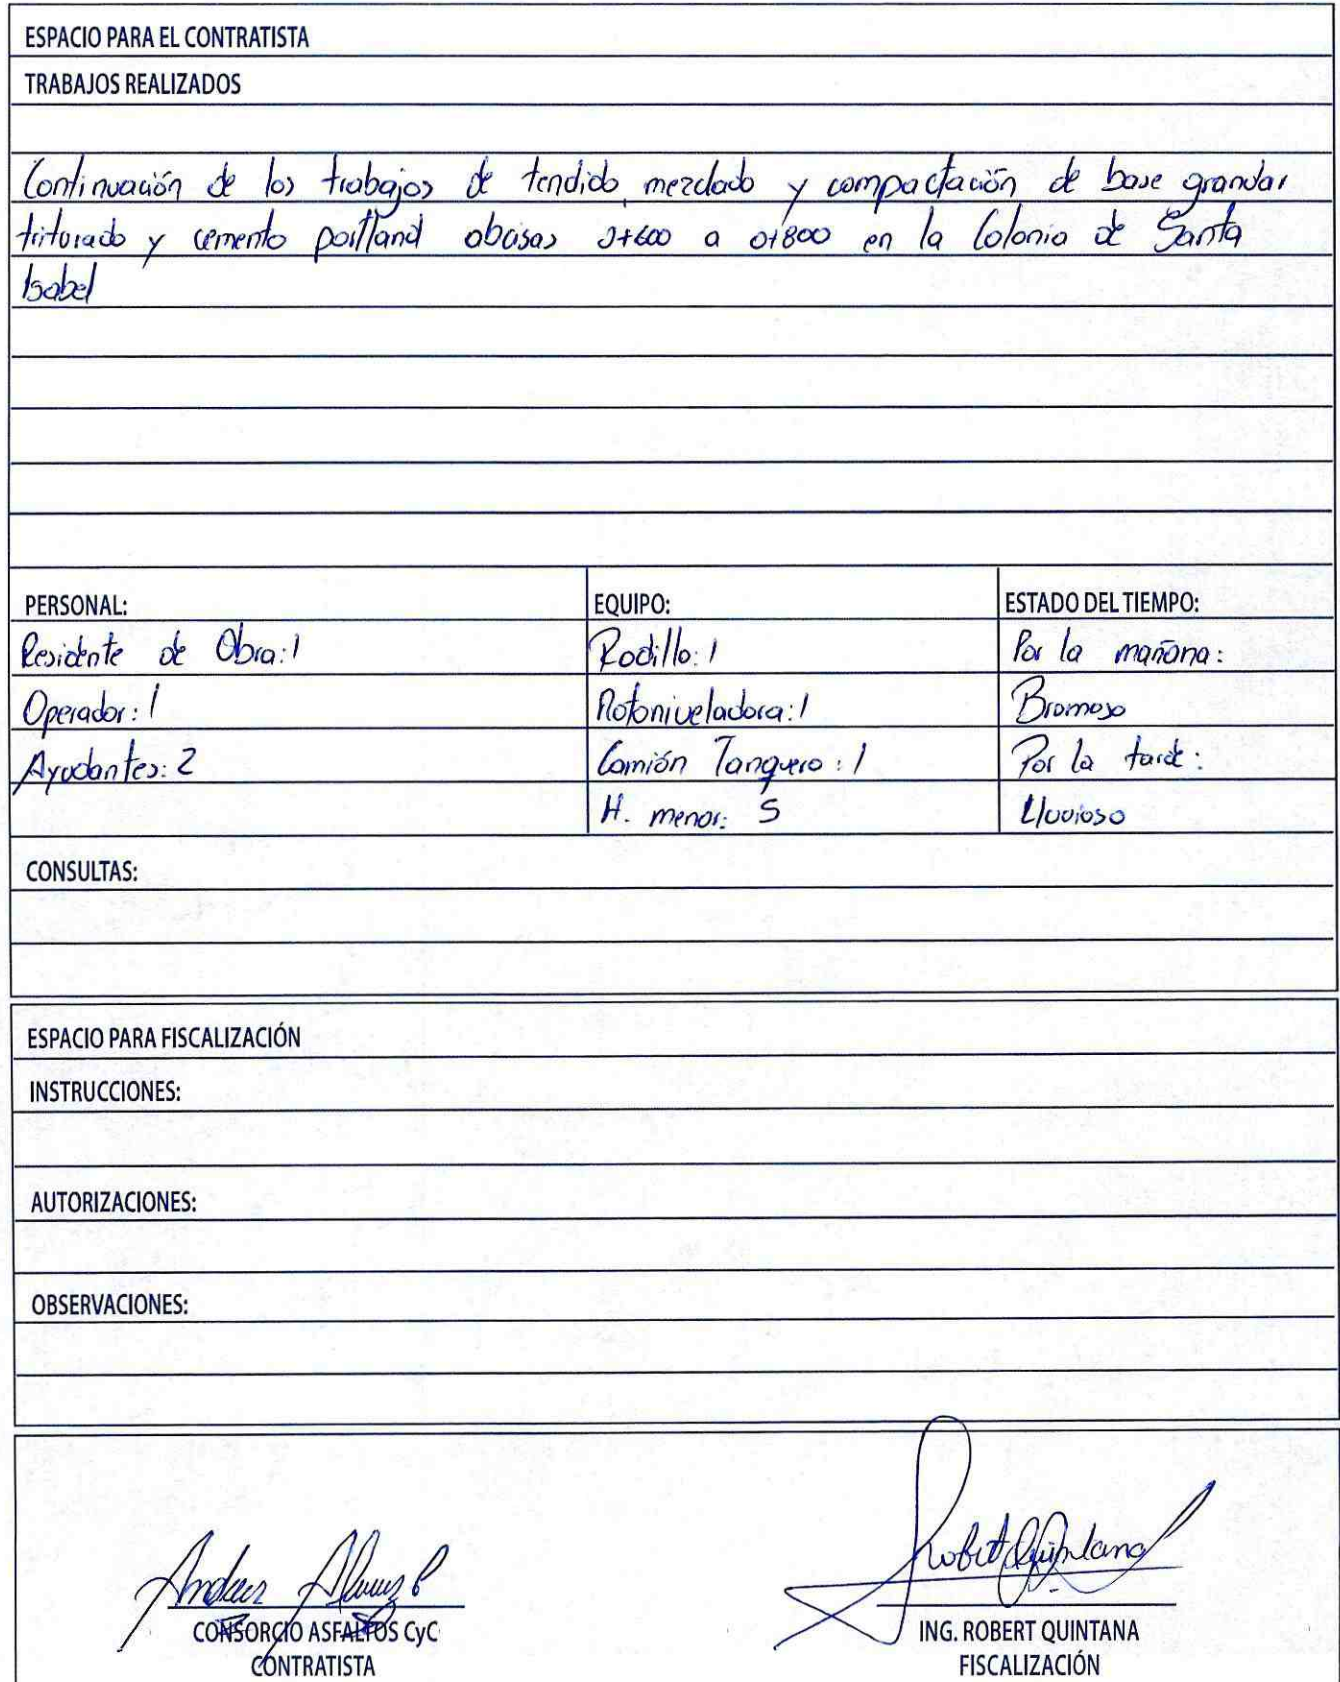 ESPACIO PARA EL CONTRATISTA
TRABAJOS REALIZADOS
Continuación de los trabajos de tendido, mezclado y compactación de base granular
triturado y cemento portland abcisas 0+600 a 0+800 en la Colonia de Santa
Isabel
PERSONAL: EQUIPO: ESTADO DEL TIEMPO:
Residente de Obra: 1 Rodillo: 1 Por la mañana:
Operador: 1 Motoniveladora: 1 Bromoso
Ayudantes: 2 Camión Tanquero: 1 Por la tarde:
H. menor: 5 Lluvioso
CONSULTAS:
ESPACIO PARA FISCALIZACIÓN
INSTRUCCIONES:
AUTORIZACIONES:
OBSERVACIONES:
Robert Quintana
CONSORCIO ASFALTOS CyC ING. ROBERT QUINTANA
CONTRATISTA FISCALIZACIÓN